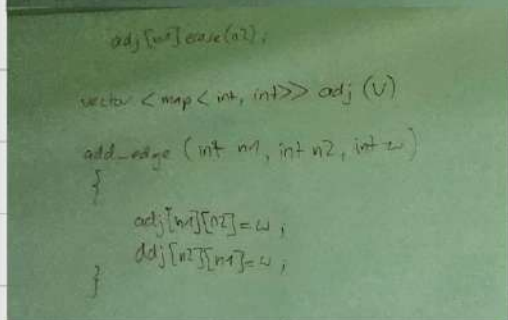 adj[n1].erase(n2);
vector <map< int, int>> adj (V)
add_edge (int n1, int n2, int w)
{
adj[n1][n2]=w;
adj[n2][n1]=w;
}